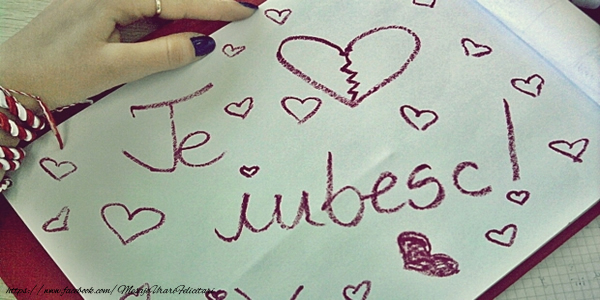 Te
iubesc!
https://www.facebook.com/MesajeUrariFelicitari